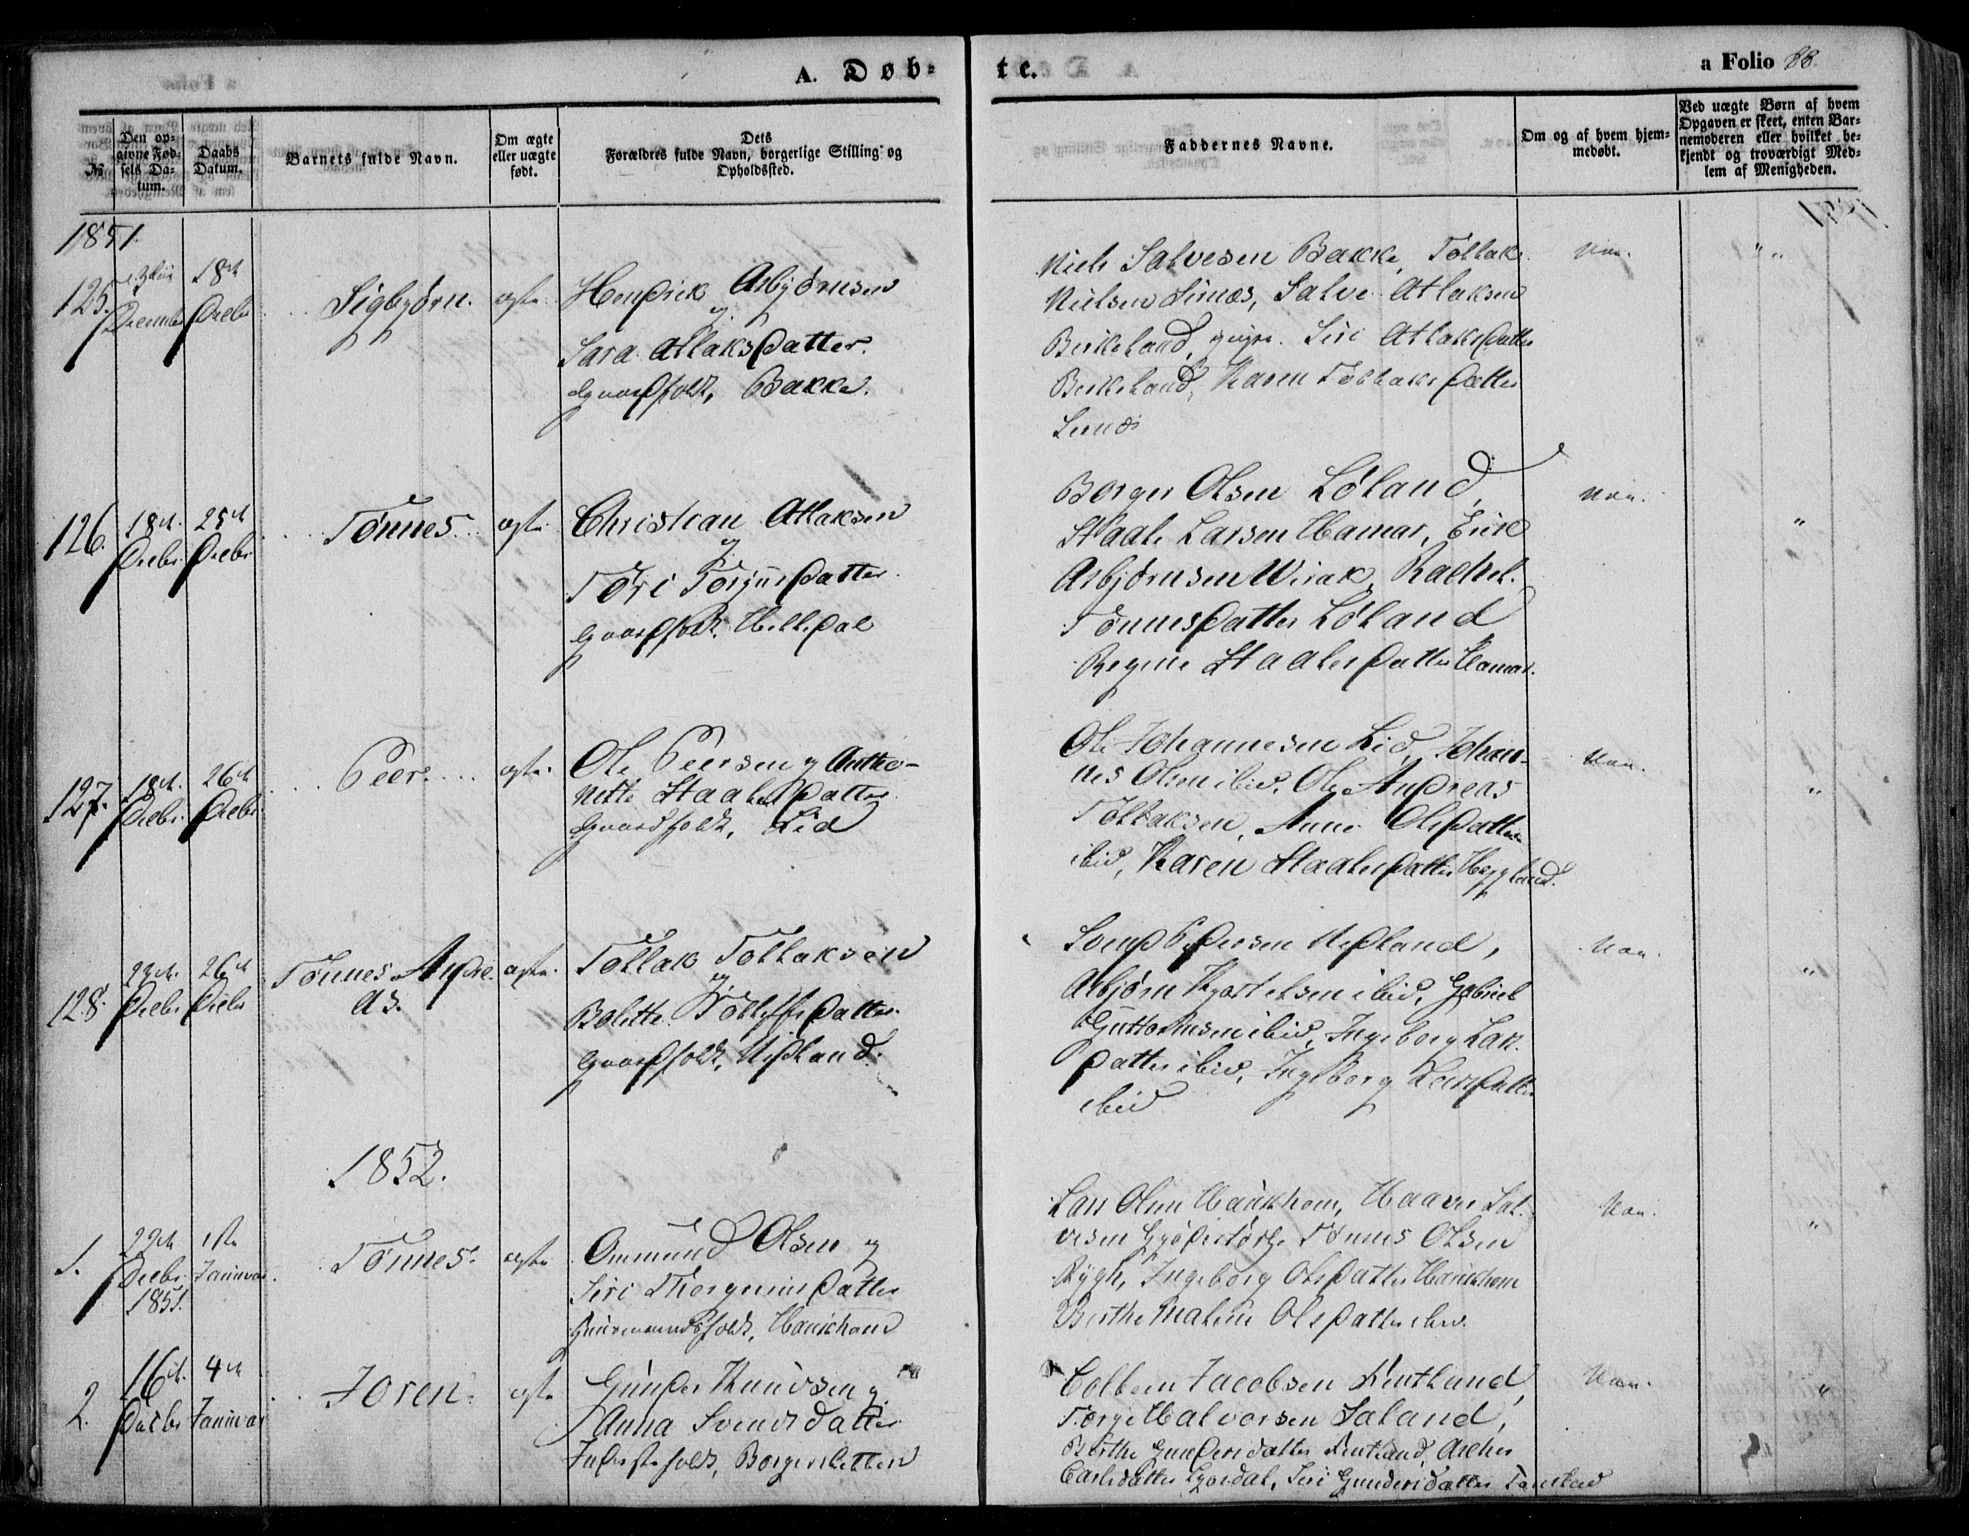 A. Døb-
te.
a Folio 88.
№
Den op-
givne Fød-
sels Da-
tum.
Daabs
Datum.
Barnets fulde Navn.
Om ægte
eller uægte
født.
Dets
Forældres fulde Navn, borgerlige Stilling og
Opholdssted.
Faddernes Navne.
Om og af hvem hjem-
medøbt.
Ved uægte Børn af hvem
Opgaven er skeet, enten Bar-
nemoderen eller hvilket be-
kjendt og troværdigt Med-
lem af Menigheden.
1851.
125.
December
18de
Decbr
Sigbjørn.
ægte
Hendrick Asbjørnsen
og
Sara Atlaksdatter.
Gaardfolk, Bakke.
Niels Salvesen Bakke, Tollak
Nielsen Sirnæs, Salve Atlaksen
Birkeland, Siri Atlaksdatter
Birkeland, Karen Tollaksdatter
Sirnæs
"
126.
18de
Decbr
25de
Decbr
Tønnes
ægte
Christian Atlaksen
og
Tøri Torjusdatter
Gaardfolk Helledal
Børger Olsen Løland,
Staale Larsen Hamar, Erik
Asbjørnsen Wirak, Rachel
Tønnesdatter Løland
Regine Staalesdatter Hamar.
"
127.
18de
Decbr
26de
Decbr
Peer.
ægte
Ole Peersen og Antho-
nette Staalesdatter
Gaardfolk, Lid
Ole Johannesen Lid, Johan-
nes Olsen ibid, Ole Andreas
Tollaksen, Anne Olsdatter
ibid, Karen Staalesdatter Heggland.
"
128.
23de
Decbr
26de
Decbr
Tønnes Andre-
as.
ægte
Tollak Tollaksen
og
Bolette Tollefsdatter
Gaardfolk, Nedland.
Svend Pedersen Nedland,
Asbjørn Kjostelsen ibid, Gabriel
Guttormsen ibid, Ingeborg Lar.
datter ibid, Ingeborg Larsdatter
ibid
"
1852.
1.
22de
Decbr
1851.
1ste
Januar.
Tønnes
ægte
Ommund Olsen og
Siri Thorgeirsdatter
Huusmandsfolk, Haukhom
Lars Olsen Haukhom, Haaver Sal-
vesen Tønnes Olsen
Rygh, Ingeborg Olsdatter Haukhom
Berthe Maline Olsdatter ibid.
"
2.
16de
Decbr
4de
Januar
Joren
ægte
Gunder Knudsen og
Anna Svendsdatter
Inderstefolk,
Colbein Jacobsen Rentland,
Torge Halvorsen Saland,
Berthe Gundersdatter Rentland,
Carlsdatter Siri Gundersdatter
"